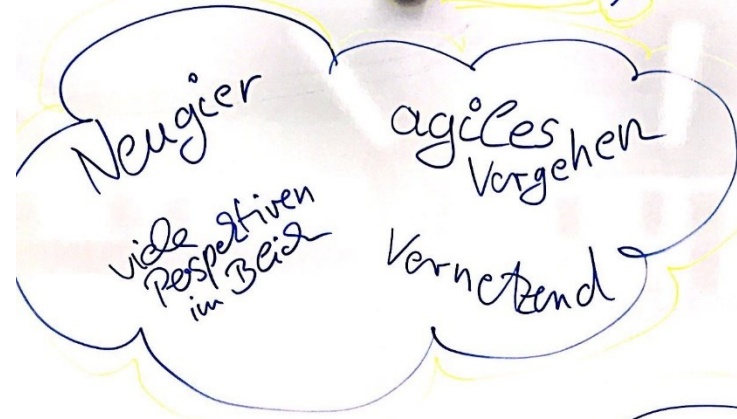 Neugier
agiles
Vorgehen
viele
Perspektiven
im Blick
Vernetzend